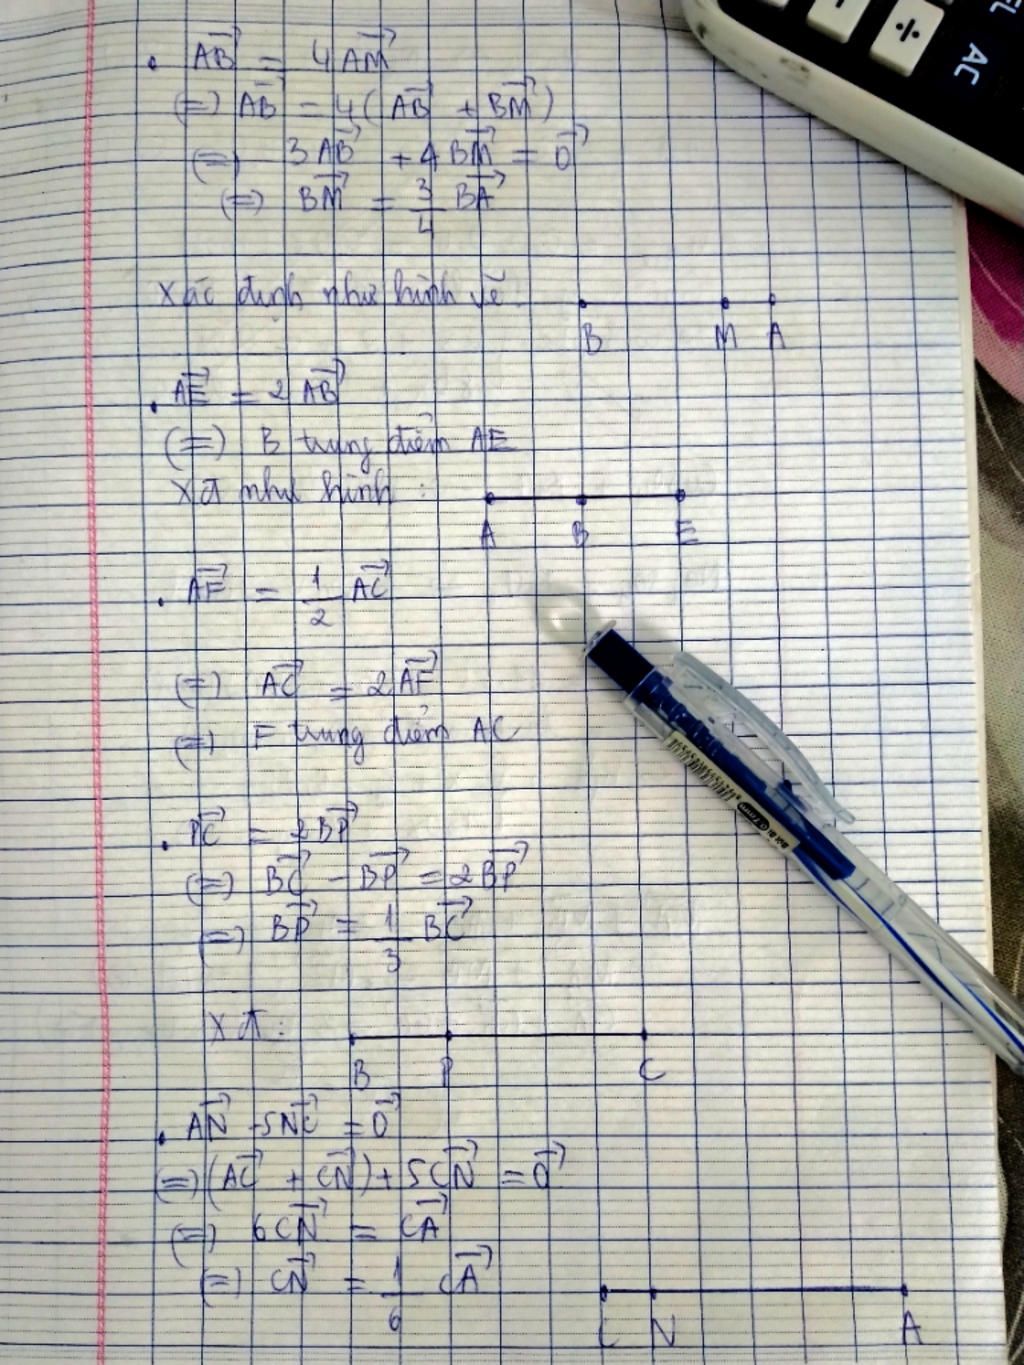 ÷
AC
. \overrightarrow{AB} = 4 \overrightarrow{AM}
(=) \overrightarrow{AB} = 4 ( \overrightarrow{AB} + \overrightarrow{BM} )
(=) 3 \overrightarrow{AB} + 4 \overrightarrow{BM} = \overrightarrow{0}
(=) \overrightarrow{BM} = \frac{3}{4} \overrightarrow{BA}
Xác định như hình vẽ.
B M A
. \overrightarrow{AE} = 2 \overrightarrow{AB}
(=) B trung điểm AE
XĐ như hình :
A B E
. \overrightarrow{AF} = \frac{1}{2} \overrightarrow{AC}
(=) \overrightarrow{AC} = 2 \overrightarrow{AF}
(=) F trung điểm AC
. \overrightarrow{PC} = 2 \overrightarrow{BP}
(=) \overrightarrow{BC} - \overrightarrow{BP} = 2 \overrightarrow{BP}
(=) \overrightarrow{BP} = \frac{1}{3} \overrightarrow{BC}
XĐ :
B P C
. \overrightarrow{AN} - 5 \overrightarrow{NC} = \overrightarrow{0}
(=) ( \overrightarrow{AC} + \overrightarrow{CN} ) + 5 \overrightarrow{CN} = \overrightarrow{0}
(=) 6 \overrightarrow{CN} = \overrightarrow{CA}
(=) \overrightarrow{CN} = \frac{1}{6} \overrightarrow{CA}
C N A